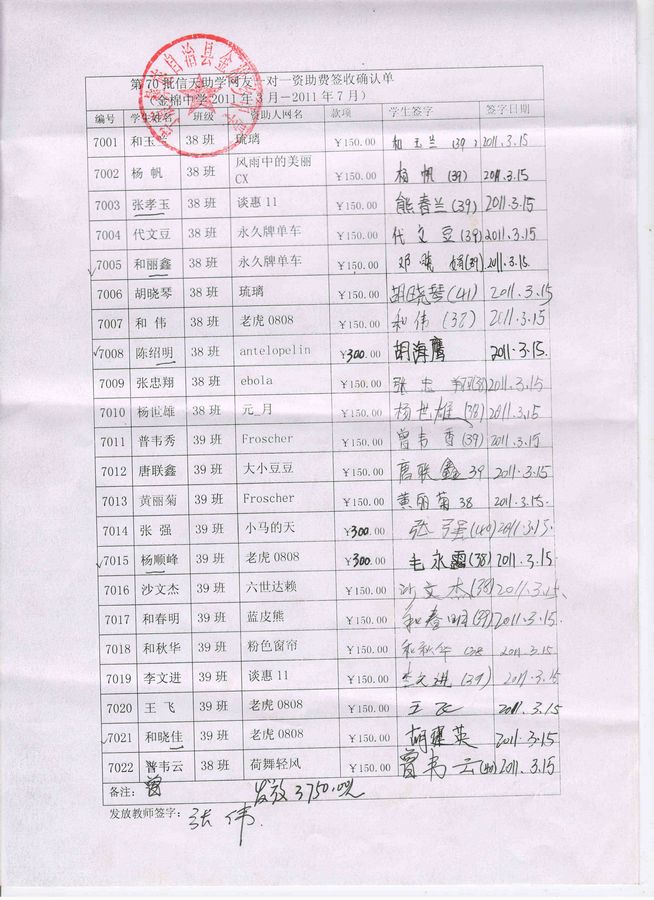 第70批信天助学网友一对一资助费签收确认单
(金棉中学2011年3月－2011年7月)
编号 学生姓名 班级 资助人网名 款项 学生签字 签字日期
7001 和玉 38班 琉璃 ￥150.00 和玉兰(39) 2011.3.15
7002 杨帆 38班 风雨中的美丽CX ￥150.00 杨帆(39) 2011.3.15
7003 张孝玉 38班 谈惠11 ￥150.00 熊春兰(39) 2011.3.15
7004 代文豆 38班 永久牌单车 ￥150.00 代文豆(39) 2011.3.15
√7005 和丽鑫 38班 永久牌单车 ￥150.00 邓 (39) 2011.3.15
7006 胡晓琴 38班 琉璃 ￥150.00 胡晓琴(41) 2011.3.15
7007 和伟 38班 老虎0808 ￥150.00 和伟(38) 2011.3.15
√7008 陈绍明 38班 antelopelin ￥300.00 胡海鹰 2011.3.15.
7009 张忠翔 38班 ebola ￥150.00 张忠翔(38) 2011.3.15
7010 杨世雄 38班 元_月 ￥150.00 杨世雄(38) 2011.3.15
7011 普韦秀 39班 Froscher ￥150.00 曾韦香(39) 2011.3.15
7012 唐联鑫 39班 大小豆豆 ￥150.00 唐联鑫 39 2011.3.15
7013 黄丽菊 39班 Froscher ￥150.00 黄丽菊 38 2011.3.15.
7014 张强 39班 小马的天 ￥300.00 张强(40) 2011.3.15
√7015 杨顺峰 39班 老虎0808 ￥300.00 毛永霜(38) 2011.3.15
7016 沙文杰 39班 六世达赖 ￥150.00 沙文杰(38) 2011.3.15.
7017 和春明 39班 蓝皮熊 ￥150.00 和春明(39) 2011.3.15
7018 和秋华 39班 粉色窗帘 ￥150.00 和秋华 (38 2011.3.15
7019 李文进 39班 谈惠11 ￥150.00 李文进(39) 2011.3.15
7020 王飞 39班 老虎0808 ￥150.00 王飞 2011.3.15
√7021 和晓佳 39班 老虎0808 ￥150.00 胡 英 2011.3.15
7022 普韦云 38班 荷舞轻风 ￥150.00 曾韦云(40) 2011.3.15
备注： 曾 发放3750.00元
发放教师签字： 张伟.